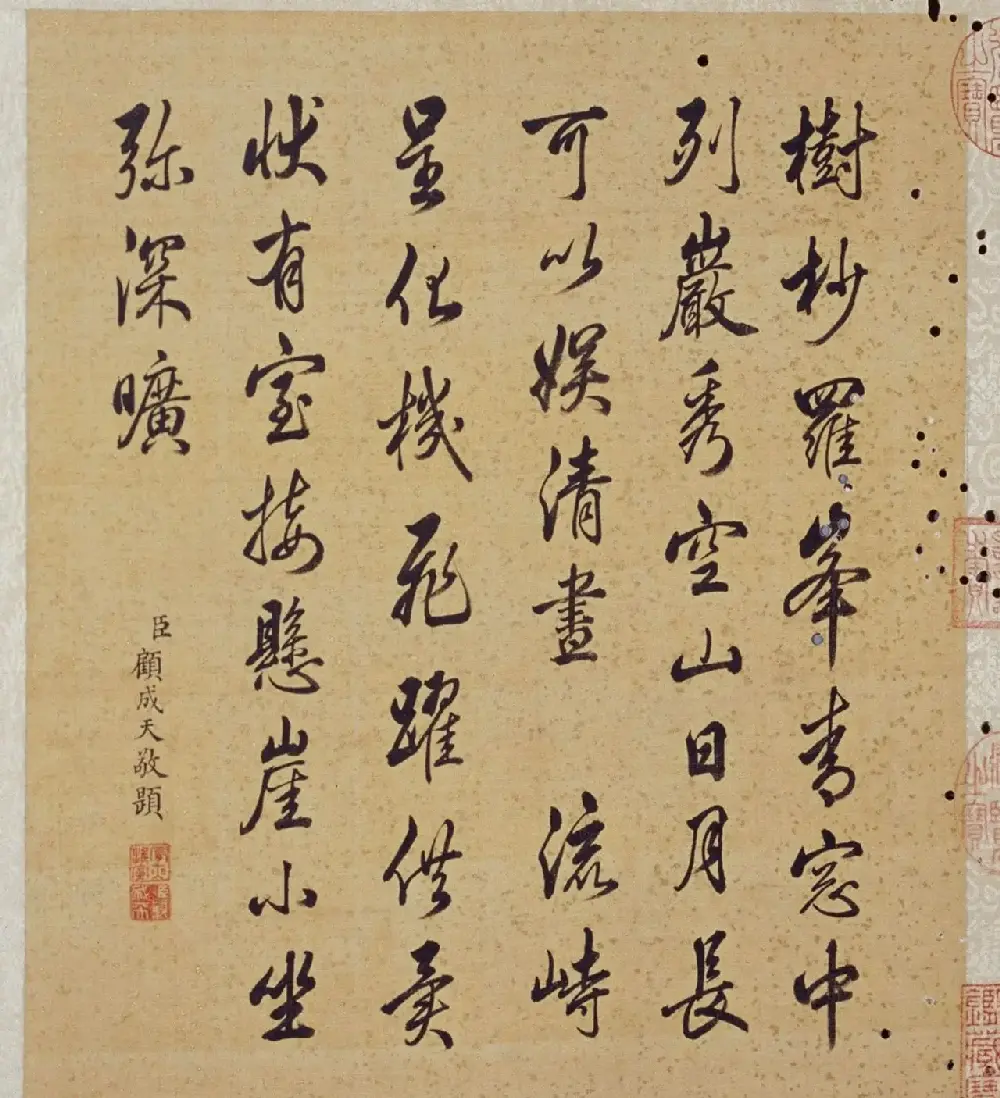 樹杪羅峯青窓中
列巖秀空山日月長
可以娛清晝 流峙
呈化機飛躍供奇
狀有室接懸崖小坐
弥深曠
臣顧成天敬題